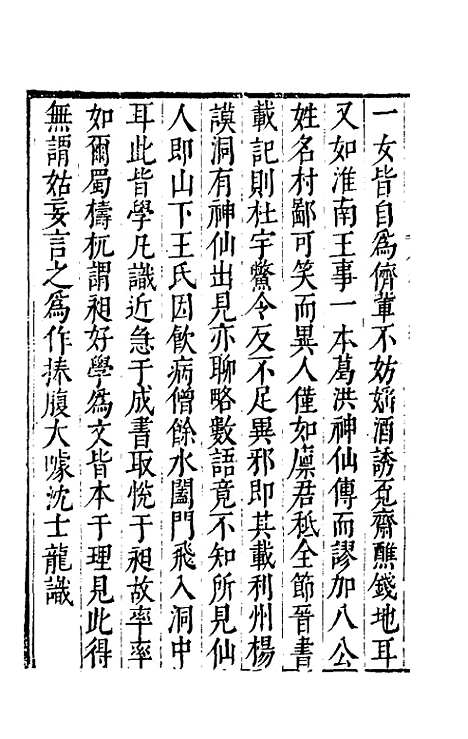 一女皆自爲儕輩不妨妡酒誘覔齋醮錢地耳
又如淮南王事一本葛洪神仙傳而謬加八公
姓名村鄙可笑而異人僅如廪君秪全節晉書
載記則杜宇鱉令反不足異邪即其載利州楊
謨洞有神仙出見亦聊略數語竟不知所見仙
人即山下王氏因飲病僧餘水闔門飛入洞中
耳此皆學凡識近急于成書取恱于昶故率率
如爾蜀檮杌謂昶好學爲文皆本于理見此得
無謂姑妄言之爲作捧腹大噱沈士龍識